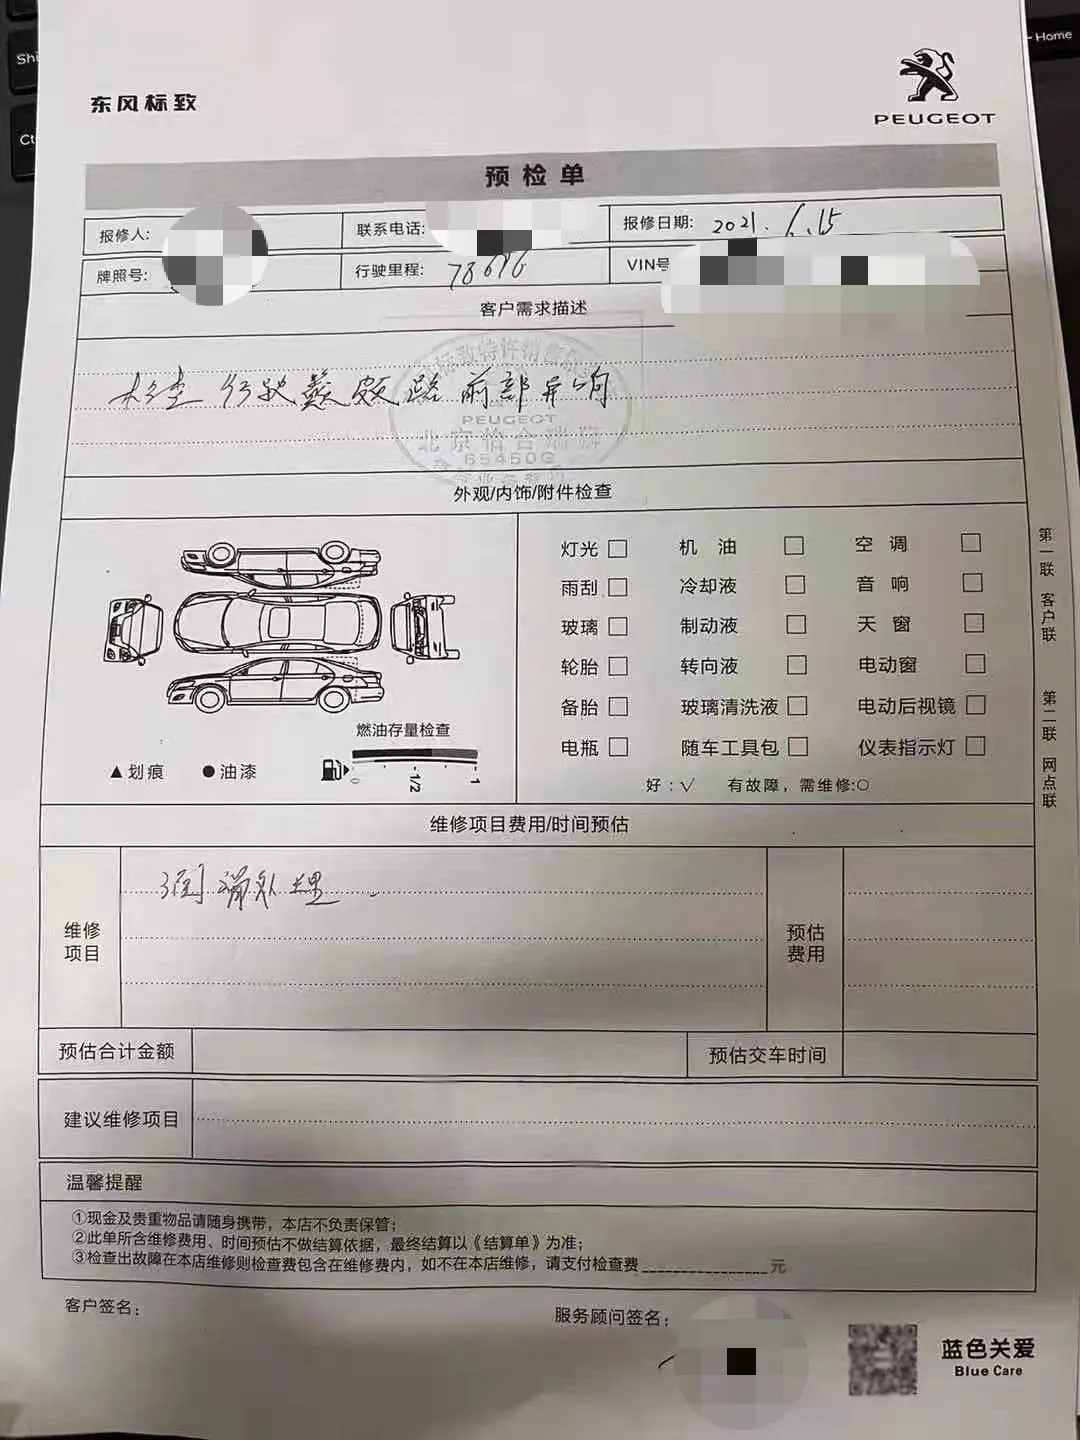 Shi
Home
Ct
东风标致
PEUGEOT
预检单
报修人: 联系电话: 报修日期: 2021.6.15
牌照号: 行驶里程: 78686 VIN号
客户需求描述
检查 行驶颠簸路 前部异响
标致特许销售
PEUGEOT
北京怡合瑞
65450G
外观/内饰/附件检查
灯光 机油 空调
雨刮 冷却液 音响
玻璃 制动液 天窗
轮胎 转向液 电动窗
备胎 玻璃清洗液 电动后视镜
电瓶 随车工具包 仪表指示灯
好:√ 有故障,需维修:○
燃油存量检查
▲划痕 ●油漆 0 1/2 1
第一联 客户联
第二联 网点联
维修项目费用/时间预估
维修项目 润滑处理. 预估费用
预估合计金额 预估交车时间
建议维修项目
温馨提醒
①现金及贵重物品请随身携带,本店不负责保管;
②此单所含维修费用、时间预估不做结算依据,最终结算以《结算单》为准;
③检查出故障在本店维修则检查费包含在维修费内,如不在本店维修,请支付检查费____________元
客户签名: 服务顾问签名:
蓝色关爱
Blue Care